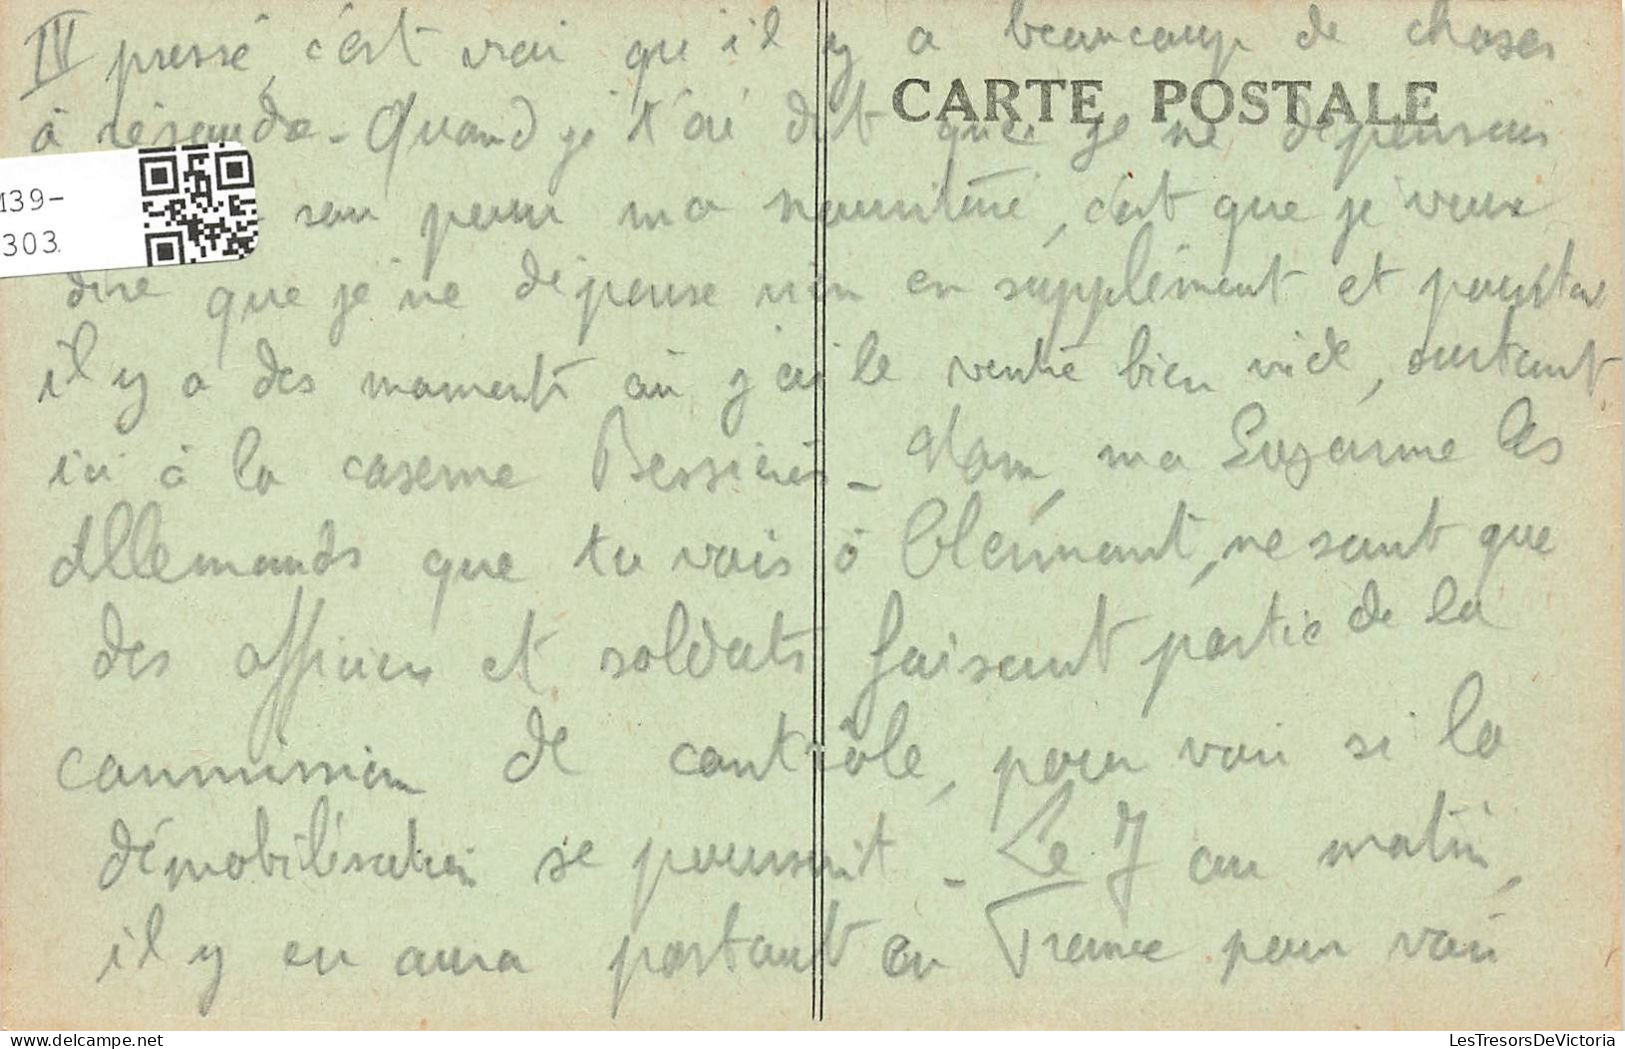 IV pressé, c'est vrai qu'il y a beaucoup de choses
CARTE POSTALE
à résoudre - Quand je t'ai dit que je ne dépensais
M39-
303
sou pour ma nourriture, c'est que je veux
dire que je ne dépense rien en supplément et pourtant
il y a des moments où j'ai le ventre bien vide, surtout
ici à la caserne Bessières - Non, ma Suzanne les
Allemands que tu vois à Clermont, ne sont que
des officiers et soldats faisant partie de la
commission de contrôle, pour voir si la
démobilisation se poursuit - Le 7 au matin,
il y en aura partout en France pour voir
LesTresorsDeVictoria
delcampe.net